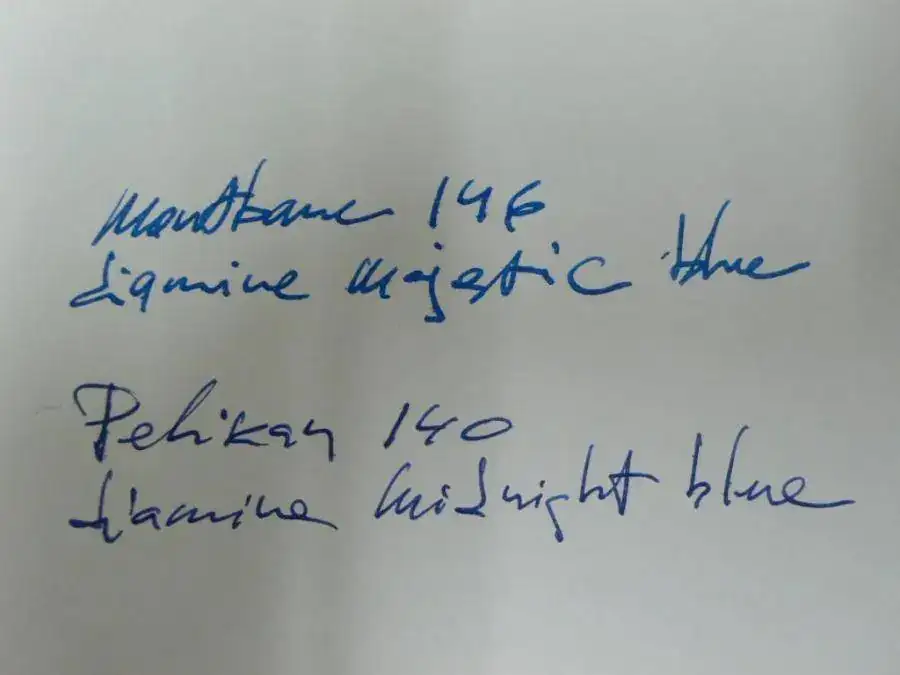 Montblanc 146
diamine majestic blue
Pelikan 140
diamine midnight blue